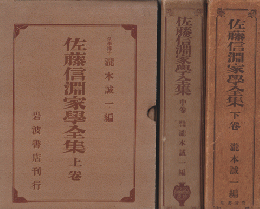 瀧本誠一編
佐藤信淵家學全集 上巻
岩波書店刊行
佐藤信淵家學全集
中巻
瀧本誠一編
佐藤信淵家學全集
下巻
瀧本誠一編